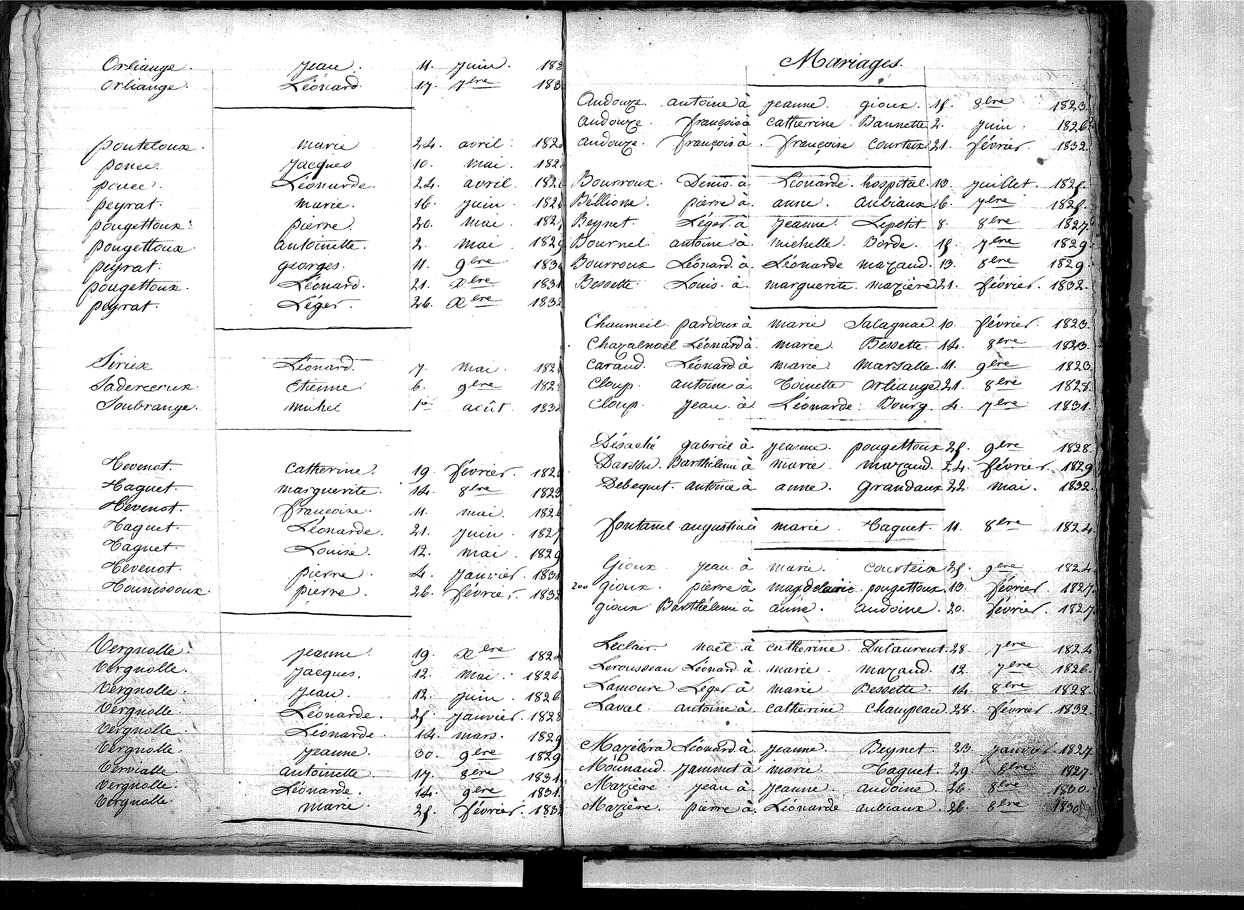 Orliange. Jean. 11. Juin. 183
Orliange. Léonard. 17. 7bre 183
pontiloux. marie 24. avril. 182
ponee. Jacques 10. mai. 182
ponee. Léonarde. 24. avril. 182
peyrat. marie. 16. Juin. 182
pougettoux. pierre. 20. mai. 182
pougettoux antoinette. 2. mai 1829
peyrat. georges. 11. 9bre 183
pougettoux. Léonard. 21. Xbre 1831
peyrat. Léger. 26. Xbre 1832
Sirieix Léonard. 7. mai. 182
Saderceux Etienne 6. 9bre 182
Soubrange. michel 1er août. 183
Tevenot. catherine. 19. février. 182
Taguet. marguerite. 14. 8bre 1823
Tevenot. françoise. 11. mai. 182
Taguet Léonarde. 21. Juin. 1827
Taguet. Louise. 12. mai. 1829
Tevenot. pierre. 4. Janvier. 183
Tounissoux. pierre. 26. février. 1832
Vergnolle. Jeanne. 19. Xbre 1824
Vergnolle. Jacques. 12. mai. 1826
Vergnolle. Jean. 12. Juin. 1826
Vergnolle. Léonarde. 25. Janvier. 1828
Vergnolle. Léonarde. 14. mars. 1829
Vergnolle. Jeanne. 30. 9bre 1829
Vervialle. antoinette. 17. 8bre 1831.
Vergnolle. Léonarde. 14. 9bre 1831.
Vergnolle. marie. 25. février. 1832
Mariages.
Audouze antoine à Jeanne. gioux. 15. 8bre 1823.
Audouze. françois à catherine Bannette 2. Juin. 1826.
Audouze. françois à françoise courteix 21. février. 1832.
Bourroux. Denis à Léonarde. hospital. 10. Juillet. 1825.
Béllione. pierre à anne. aubiaux. 6. 7bre 1825.
Beynet. Léger à Jeanne. Lepetit. 8. 8bre 1827.
Bournel antoine à michelle Borde. 15. 7bre 1829.
Bourroux Léonard à Léonarde mazaud. 13. 8bre 1829.
Bessette. Louis. à marguerite mazière 21. février. 1832.
Chaumeil. pardoux à marie Salagnac 10. février. 1823.
Chazalnoël Léonard à marie. Bessette. 14. 8bre 1823.
Caraud. Léonard à marie marsalle. 11. 9bre 1823.
Cloup. antoine à Toinette Orliange 21. 8bre 1828.
Cloup. Jean à Léonarde. Bourg. 4. 7bre 1831.
gabriel à Jeanne. pougettoux 25. 9bre 1828.
Barthélemi à marie. mazaud. 24. février. 1829.
Debequet. antoine à anne. Grandaux 22. mai. 1832.
fontanel augustin à marie. Taguet. 11. 8bre 1824.
Gioux. Jean à marie. courteix 25. 9bre 1824.
200 gioux. pierre à magdelaine pougettoux. 13. février. 1827.
gioux Barthélemi à anne. audoine. 20. février. 1827.
Leclair. noël à catherine. Dulaurent. 28. 7bre 1824
Lerousseau Léonard à marie mazaud. 12. 7bre 1826.
Lamoure Léger à marie Bessette. 14. 8bre 1828.
Laval. antoine à catherine champeau. 28. février 1832.
Léonard à Jeanne. Beynet. 23. Janvier. 1827.
Jammet à marie. Taguet. 29. 8bre 1827.
Mazière. Jean à Jeanne. audoine. 26. 8bre 1830.
Mazière. pierre à Léonarde aubiaux. 26. 8bre 1830.